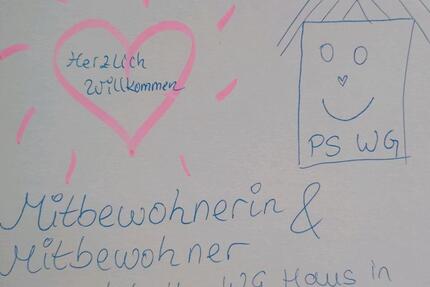 Herzlich
Willkommen
PS WG
Mitbewohnerin &
Mitbewohner
WG Haus in